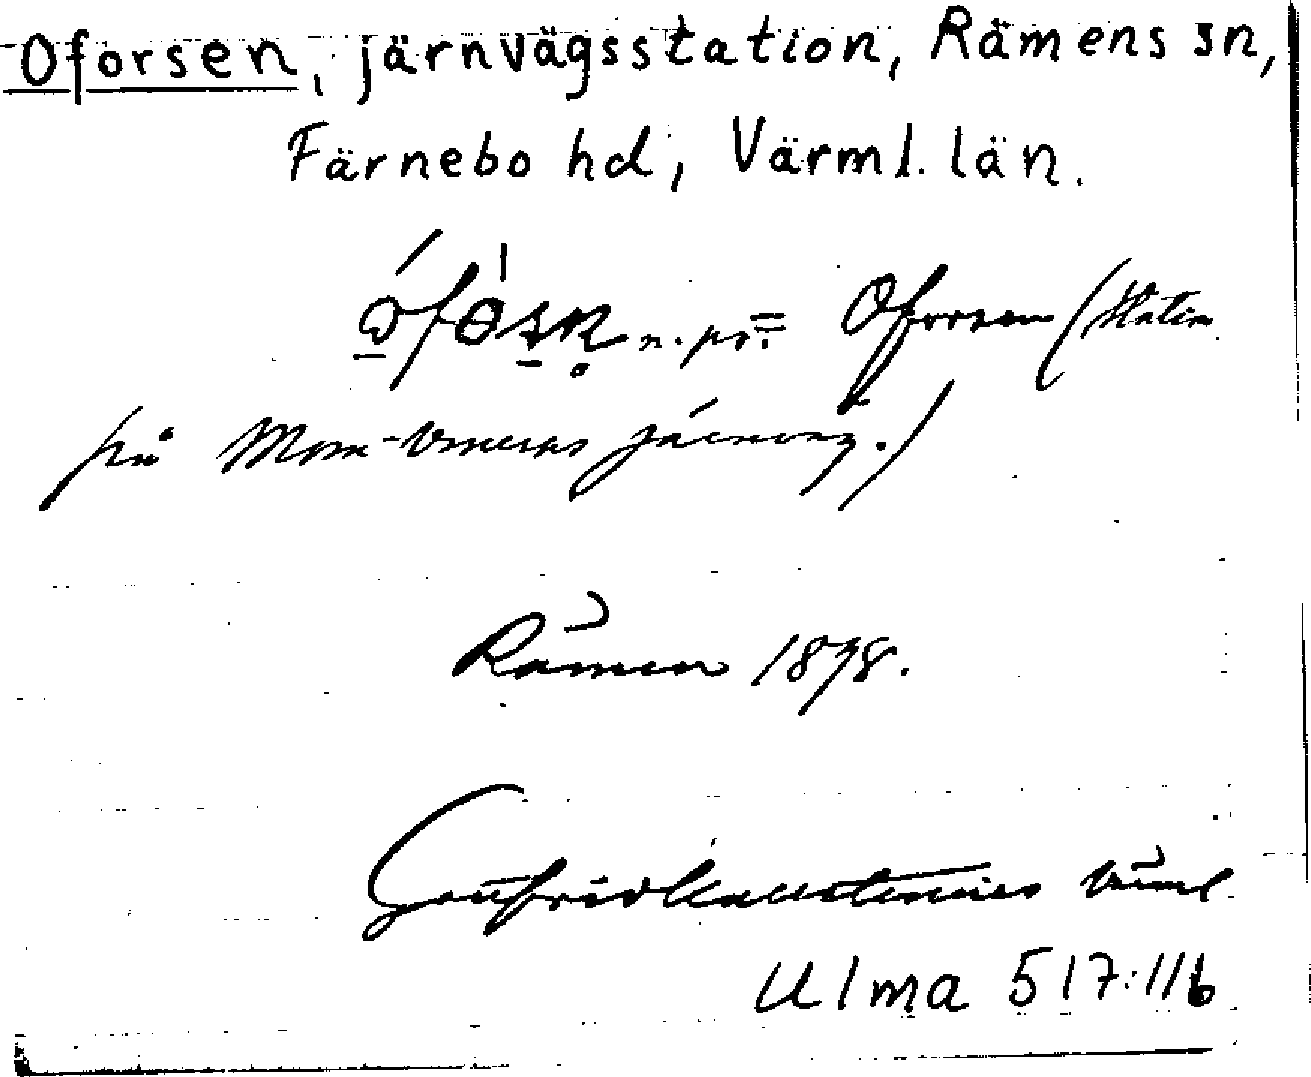 Oforsen, järnvägsstation, Rämens sn,
Färnebo hd, Värml. län.
n. pr. = Oforsen (Station
på Mora-Veneras järnväg.)
Rämen 1898.
Gottfrid Kallstenius Värml
Ulma 517:11b